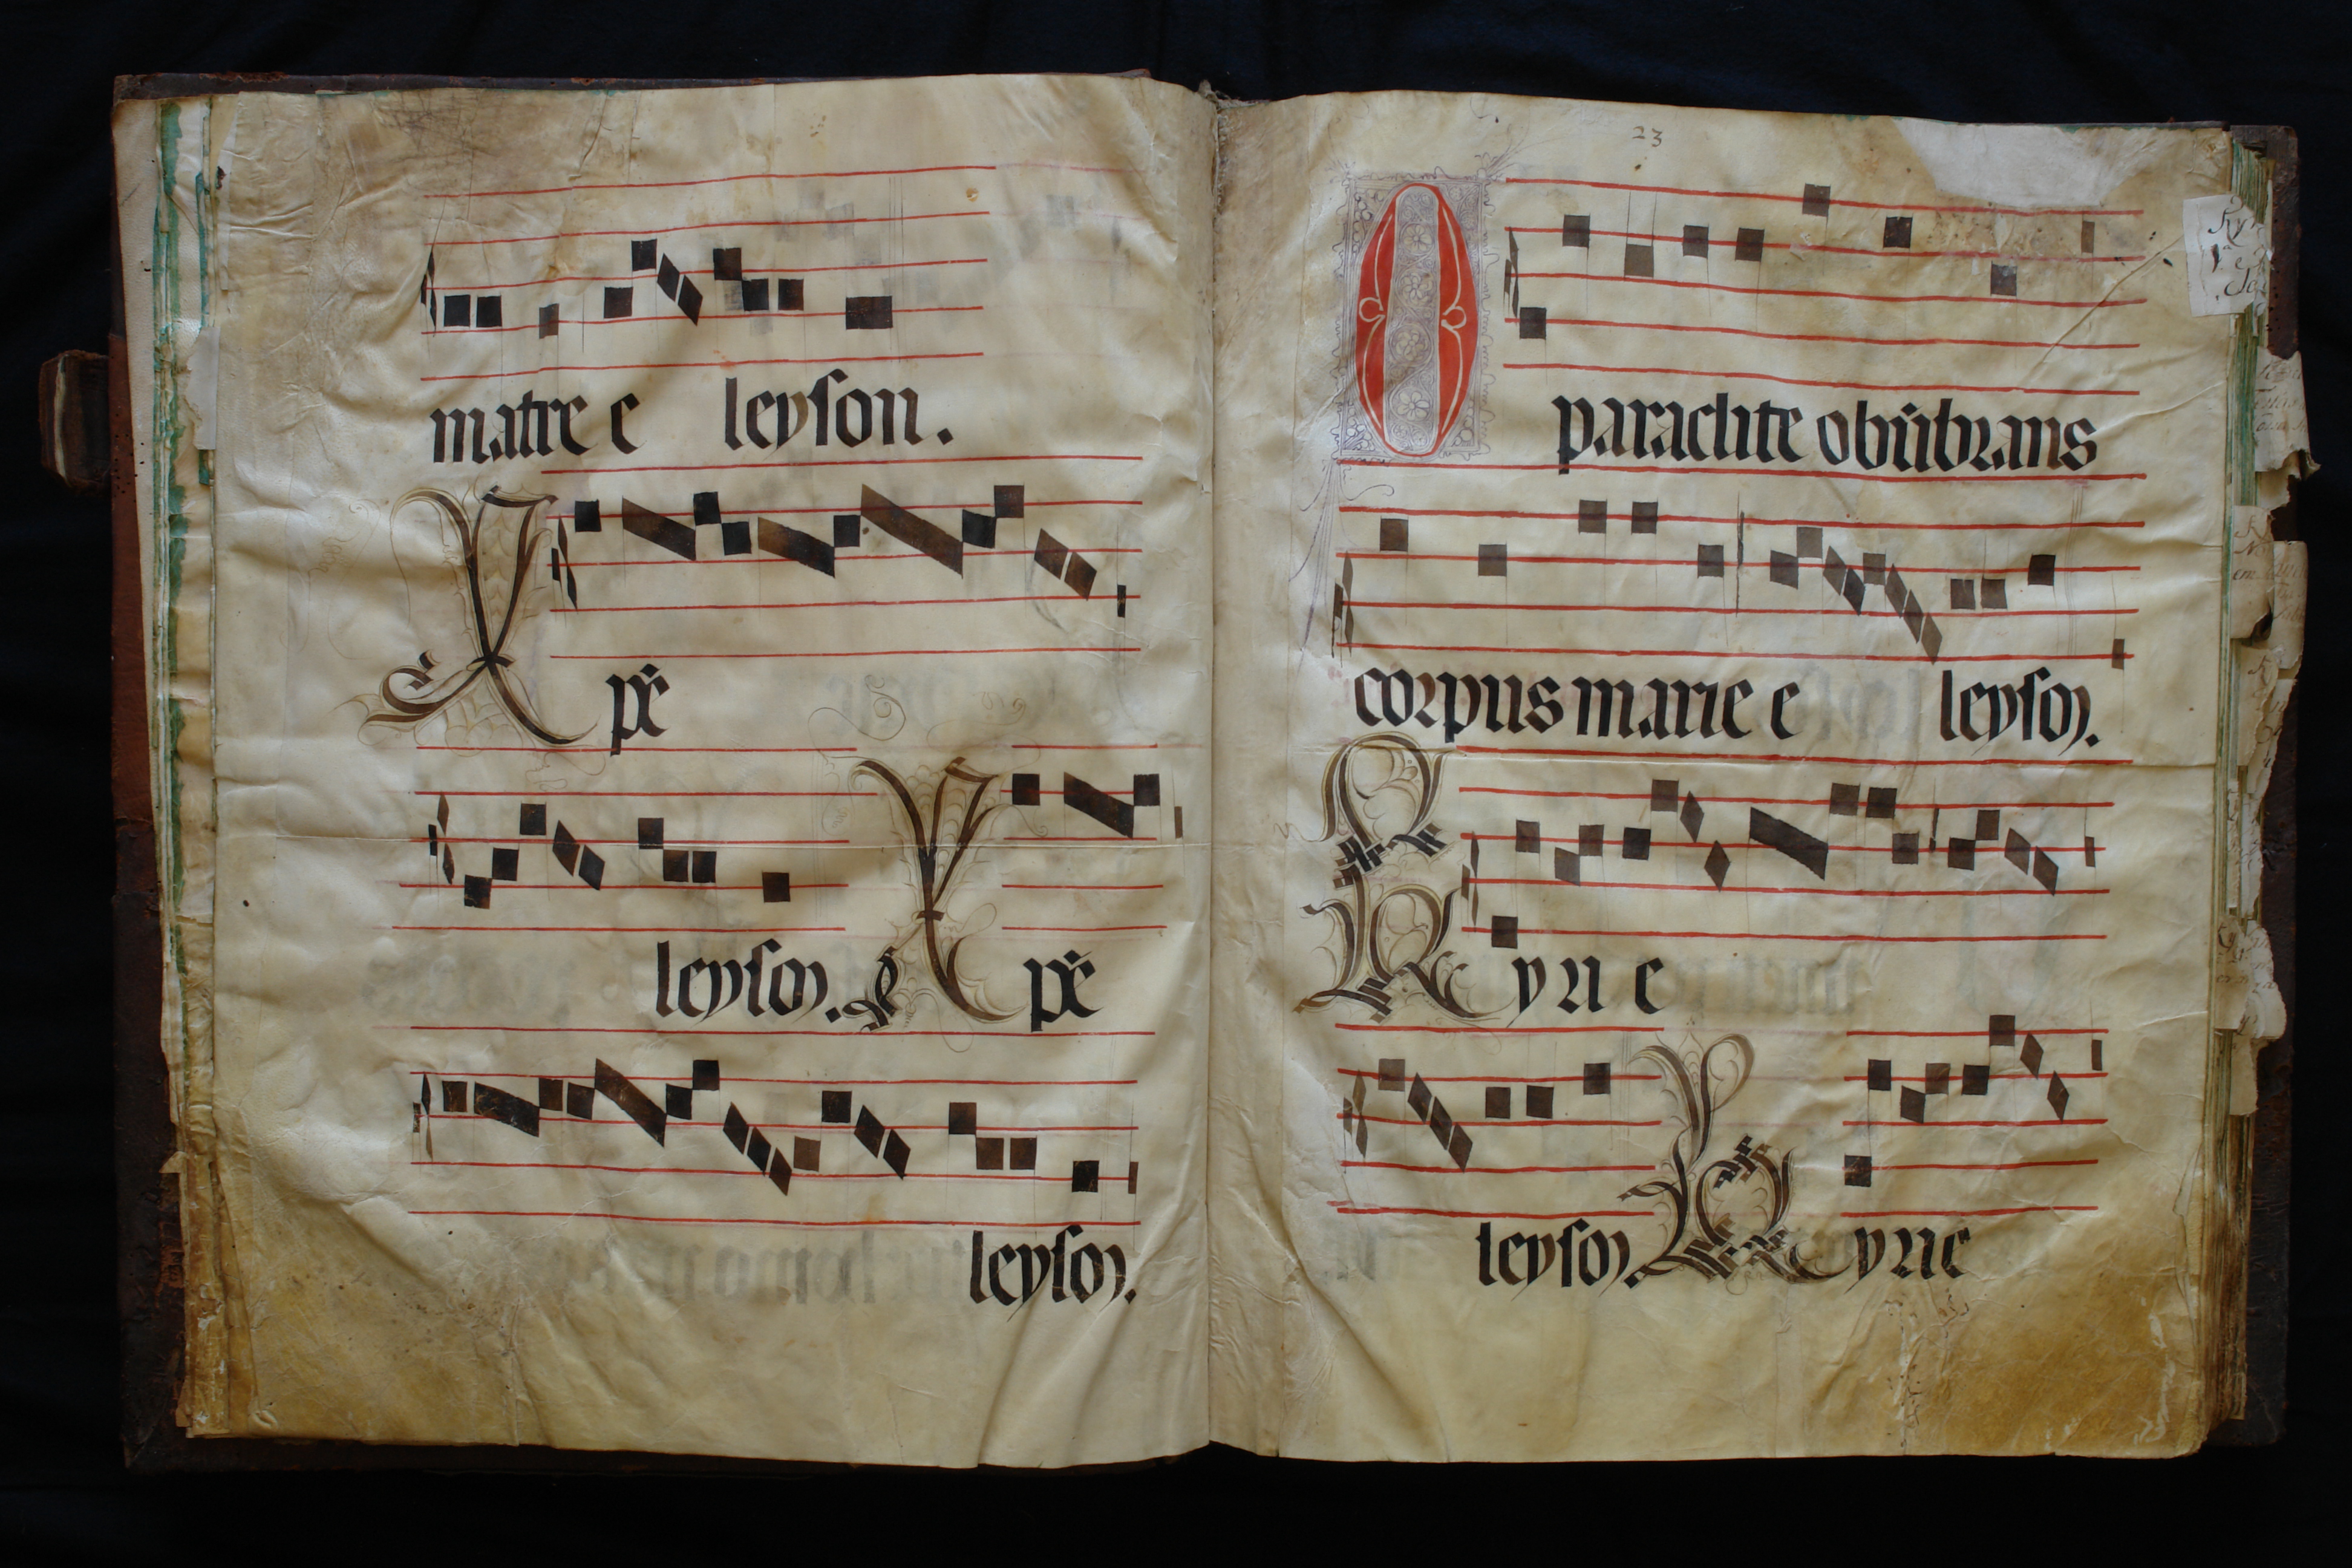 matre e leyson.
Xpē
leyson. Xpē
leyson.
23
O paraclite obūbrans
corpus marie e leyson.
Kyrie
leyson. Kyrie